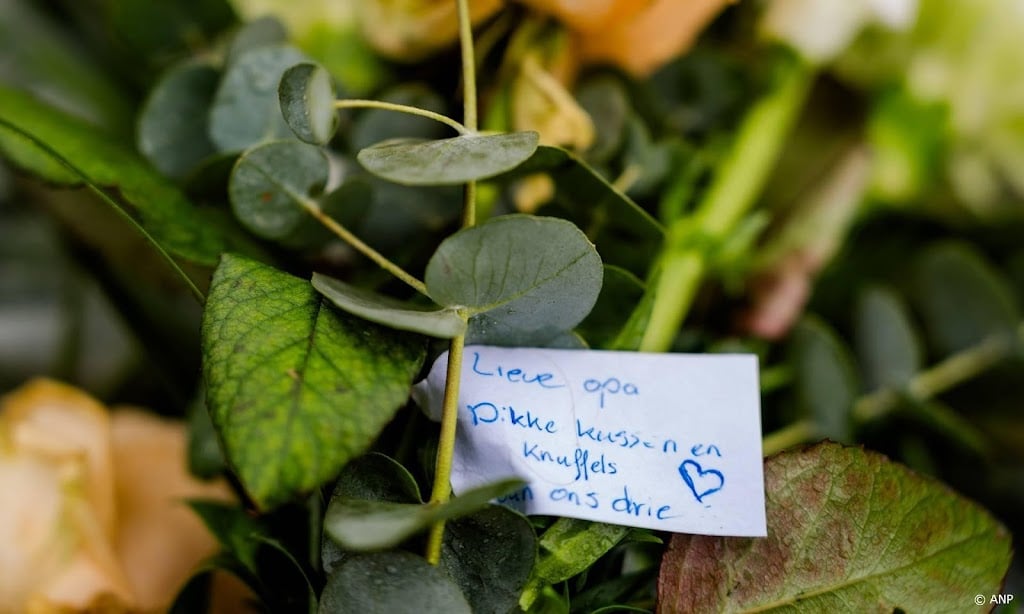 Lieve opa
Dikke kussen en
Knuffels
van ons drie
© ANP